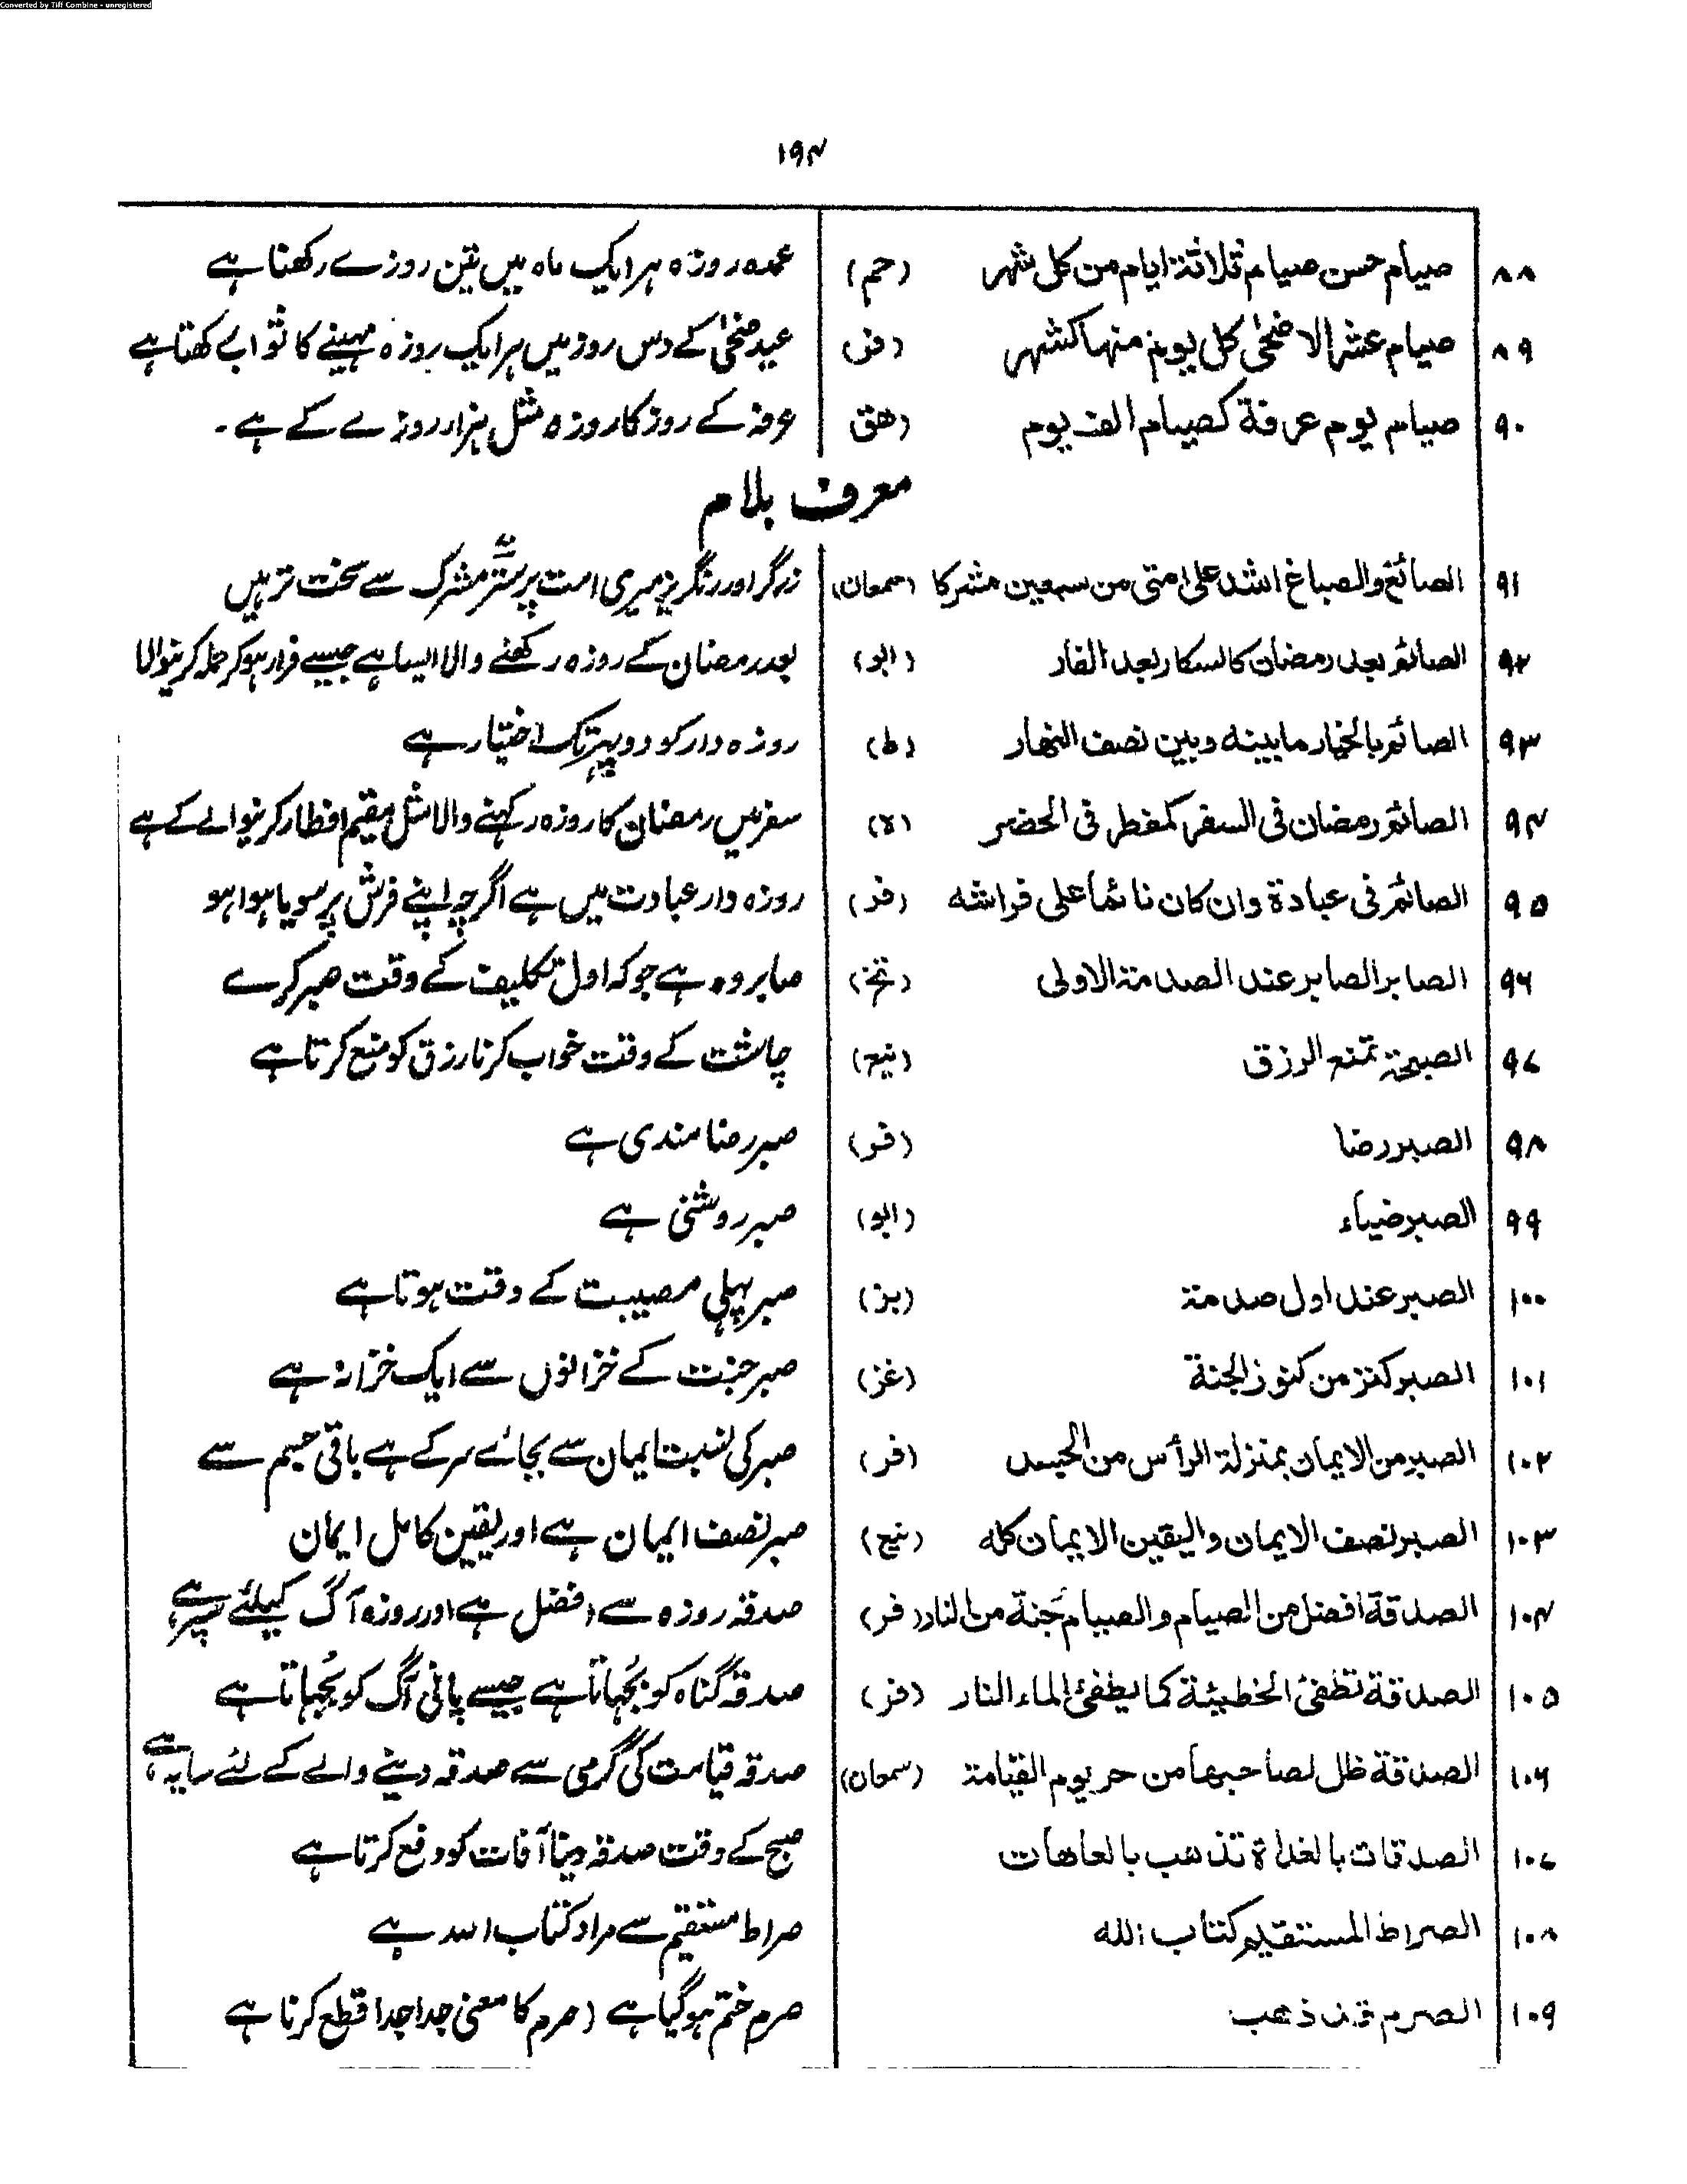 Converted by Tiff Combine - unregistered
۱۹۴
۸۸ صیام حسن صیام ثلاثة ایام من کل شهر (حم) عمدہ روزہ ہر ایک ماہ میں تین روزے رکھنا ہے
۸۹ صیام عشر الاضحیٰ کل یوم منها کشهر (فر) عید ضحیٰ کے دس روز میں ہر ایک روزہ مہینے کا ثواب رکھتا ہے
۹۰ صیام یوم عرفة کصیام الف یوم (هق) عرفہ کے روز کا روزہ مثل ہزار روزے کے ہے۔
معرف بلام
۹۱ الصائغ والصباغ اشد علی امتی من سبعین مشرکا (سمعان) زرگر اور رنگریز میری امت پر ستر مشرک سے سخت تر ہیں
۹۲ الصائم بعد رمضان کالسکار بعد الفار (ابو) بعد رمضان کے روزہ رکھنے والا ایسا ہے جیسے فرار ہو کر حملہ کرنیوالا
۹۳ الصائم بالخیار ما بینه وبین نصف النهار (ط) روزہ دار کو دوپہر تک اختیار ہے
۹۴ الصائم رمضان فی السفر کمفطر فی الحضر (ہ) سفر میں رمضان کا روزہ رکہنے والا مثل مقیم افطار کرنیوالے کے ہے
۹۵ الصائم فی عبادة وان کان نائما علی فراشه (فر) روزہ دار عبادت میں ہے اگرچہ اپنے فرش پر سویا ہوا ہو
۹۶ الصابر الصابر عند الصدمة الاولی (تخ) صابر وہ ہے جو کہ اول تکلیف کے وقت صبر کرے
۹۷ الصبحة تمنع الرزق چاشت کے وقت خواب کرنا رزق کو منع کرتا ہے
۹۸ الصبر رضا (فر) صبر رضامندی ہے
۹۹ الصبر ضیاء (ابو) صبر روشنی ہے
۱۰۰ الصبر عند اول صدمة (بز) صبر پہلی مصیبت کے وقت ہوتا ہے
۱۰۱ الصبر کنز من کنوز الجنة (غز) صبر جنت کے خزانوں سے ایک خزانہ ہے
۱۰۲ الصبر من الایمان بمنزلة الرأس من الجسد (فر) صبر کی نسبت ایمان سے بجائے سر کے ہے باقی جسم سے
۱۰۳ الصبر نصف الایمان والیقین الایمان کله صبر نصف ایمان ہے اور یقین کامل ایمان
۱۰۴ الصدقة افضل من الصیام والصیام جنة من النار (فر) صدقہ روزہ سے افضل ہے اور روزہ آگ کیلئے سپر ہے
۱۰۵ الصدقة تطفئ الخطیئة کما یطفئ الماء النار (فر) صدقہ گناہ کو بُجہاتا ہے جیسے پانی آگ کو بُجہاتا ہے
۱۰۶ الصدقة ظل لصاحبها من حر یوم القیامة (سمعان) صدقہ قیامت کی گرمی سے صدقہ دینے والے کے لئے سایہ ہے
۱۰۷ الصدقات بالغداة تذهب بالعاهات صبح کے وقت صدقہ دینا آفات کو دفع کرتا ہے
۱۰۸ الصراط المستقیم کتاب الله صراط مستقیم سے مراد کتاب اللہ ہے
۱۰۹ الصرم قد ذهب صرم ختم ہو گیا ہے (صرم کا معنی جدا جدا قطع کرنا ہے